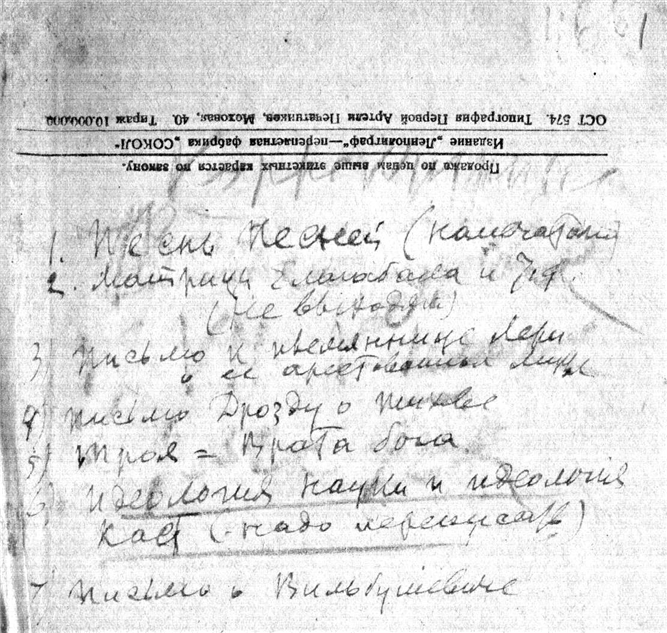 ОСТ 574. Типография Первой Артели Печатников, Моховая, 40. Тираж 10.000.000
Издание „Ленполиграф"—переплетная фабрика „СОКОЛ"
Продажа по ценам выше этикетных карается по закону.
1. Песнь Песней (напечатана)
2. Матрицы и
(не выходят)
3) письмо к племяннице Лери
о ее арестованном муже
4) письмо Дрозду о
5) Троя = Врата бога
6) идеология науки и идеология
каст (надо переписать)
7) письмо о Вильбушевиче